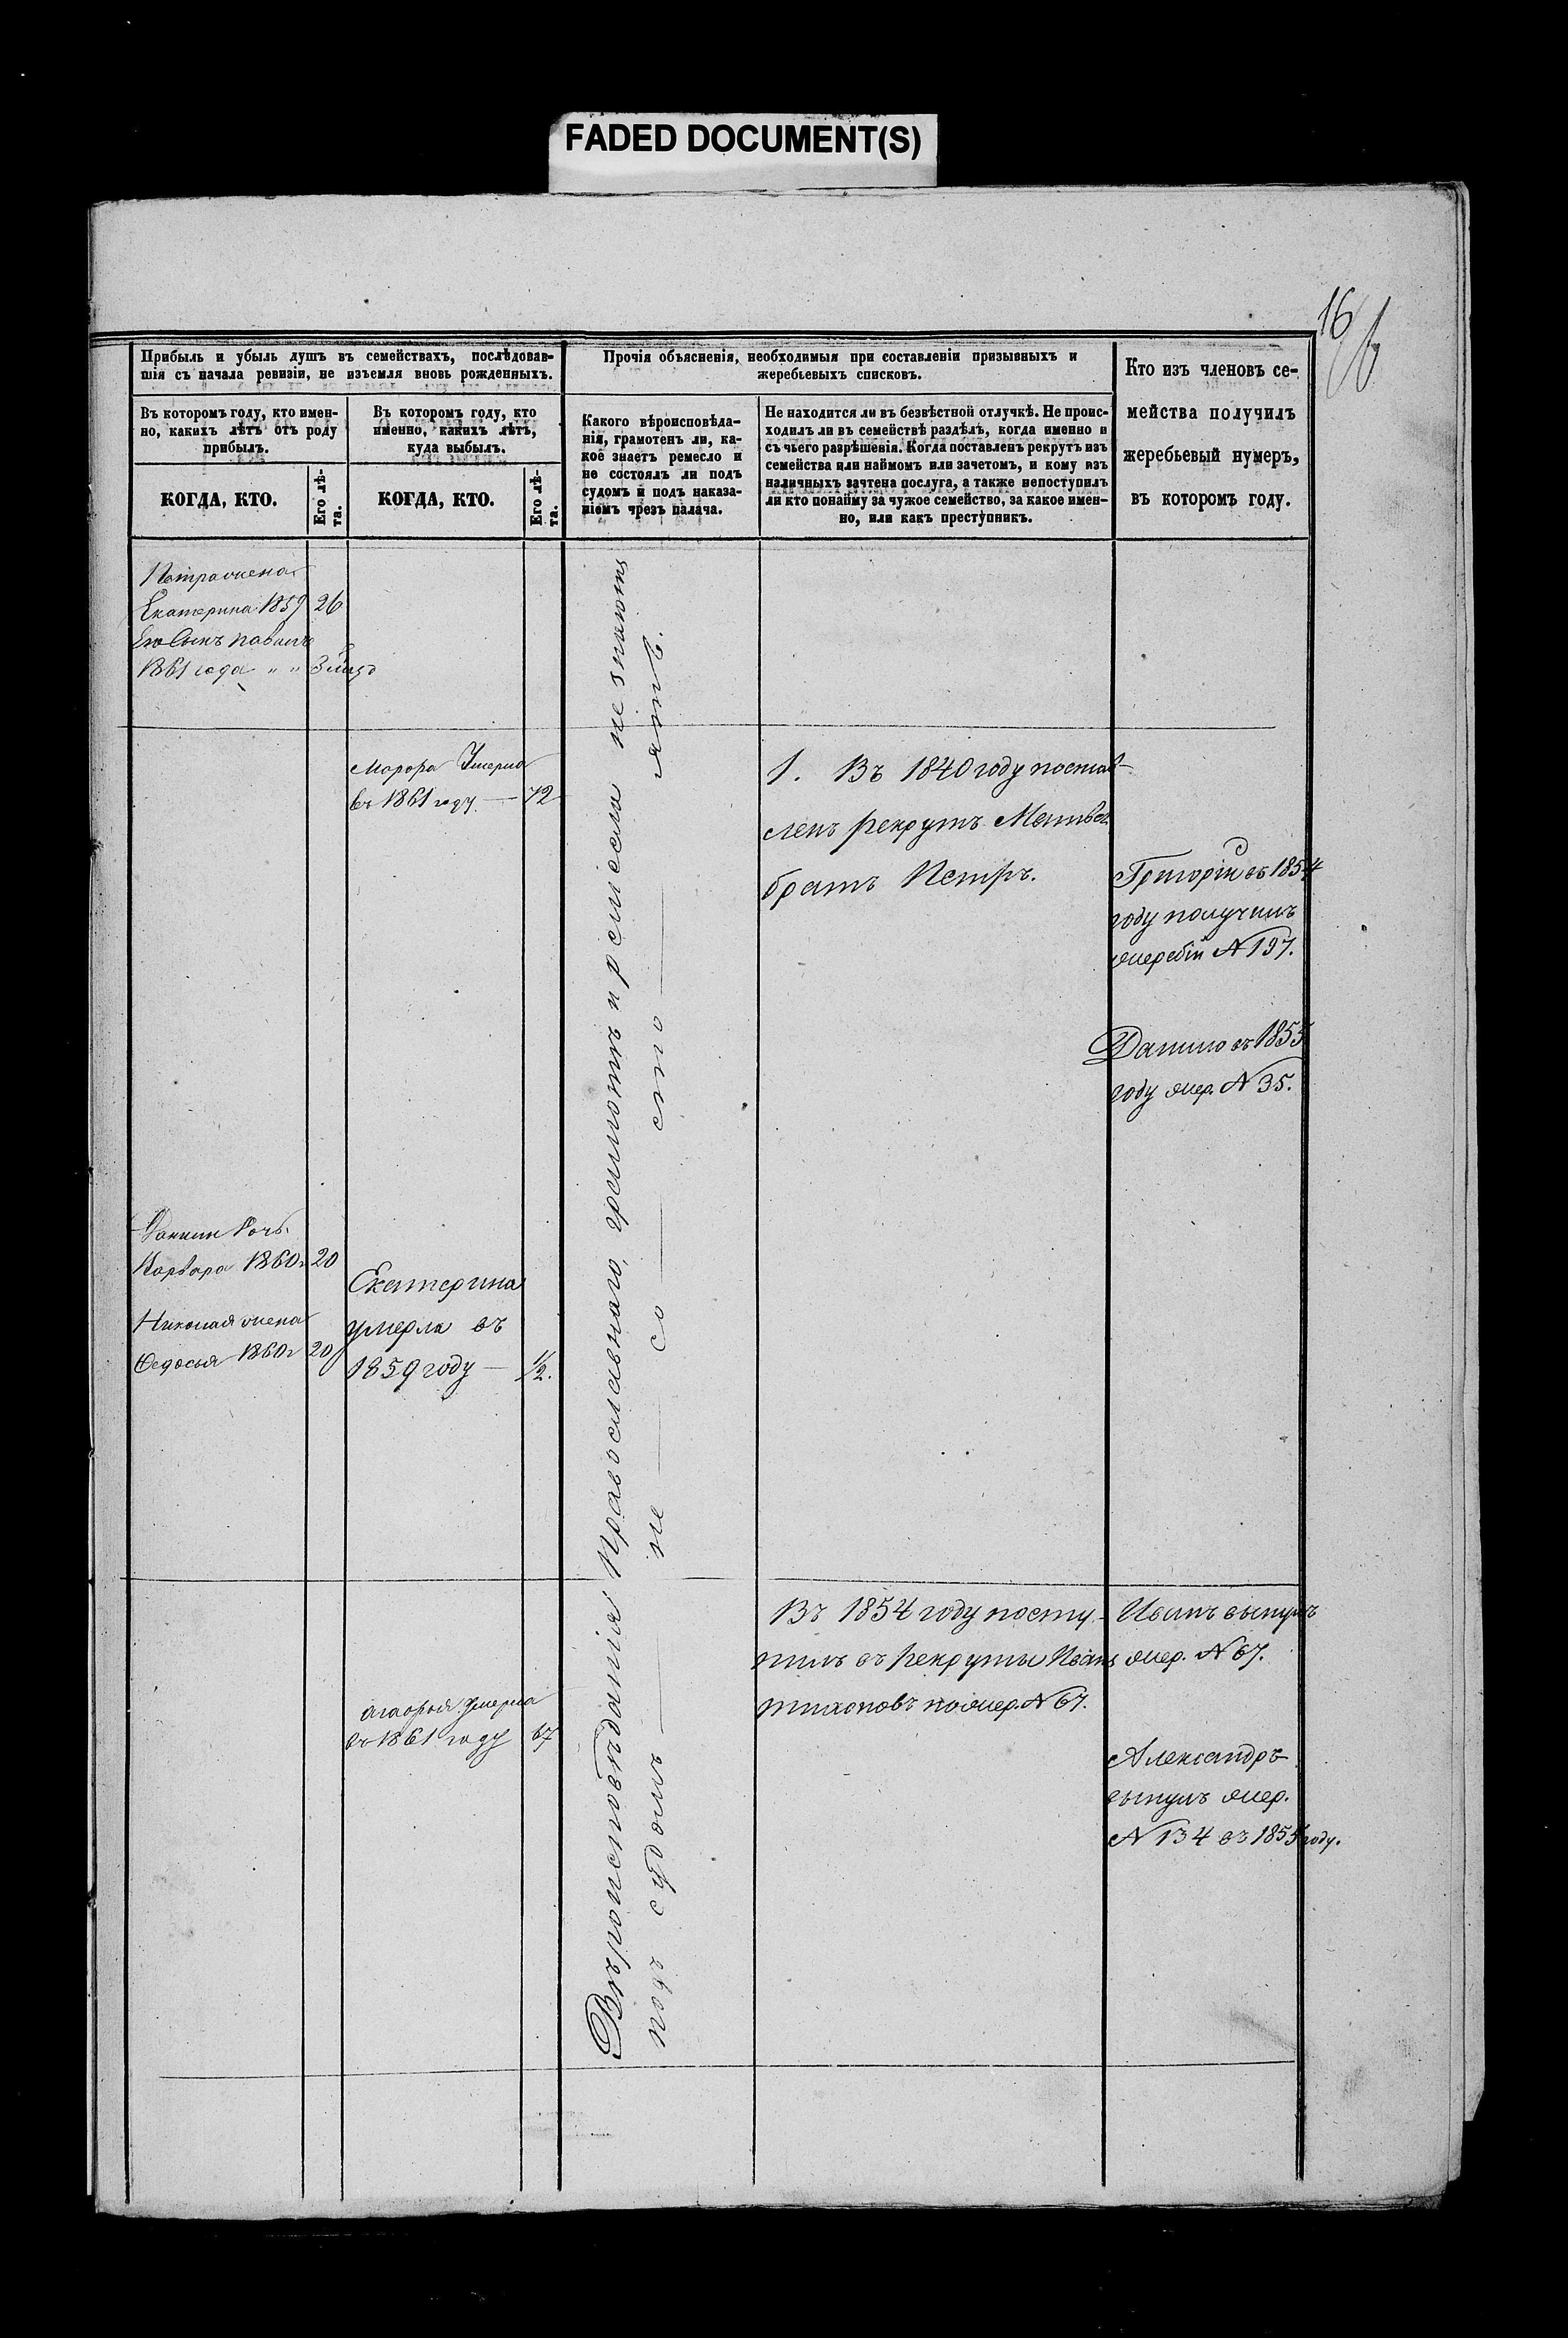 FADED DOCUMENT(S)
16
Прибыль и убыль душъ въ семействахъ, послѣдовав-
шія съ начала ревизіи, не изъемля вновь рожденныхъ.
Прочія объясненія, необходимыя при составленіи призывныхъ и
жеребьевыхъ списковъ.
Кто изъ членовъ се-
мейства получилъ
жеребьевый нумеръ,
въ которомъ году.
Въ которомъ году, кто имен-
но, какихъ лѣтъ отъ роду
прибылъ.
Въ которомъ году, кто
именно, какихъ лѣтъ,
куда выбылъ.
Какого вѣроисповѣда-
нія, грамотенъ ли, ка-
кое знаетъ ремесло и
не состоялъ ли подъ
судомъ и подъ наказа-
ніемъ чрезъ палача.
Не находится ли въ безвѣстной отлучкѣ. Не проис-
ходилъ ли въ семействѣ раздѣлъ, когда именно и
съ чьего разрѣшенія. Когда поставленъ рекрутъ изъ
семейства или наймомъ или зачетомъ, и кому изъ
наличныхъ зачтена послуга, а также непоступилъ
ли кто понайму за чужое семейство, за какое имен-
но, или какъ преступникъ.
КОГДА, КТО.
Его лѣ-
та.
КОГДА, КТО.
Его лѣ-
та.
Петра жена
Екатерина 1859 26
Его Сынъ павилъ
1861 года " " 3
Умерла
въ 1861 году — 72
1. Въ 1840 году постав-
ленъ рекрутъ
братъ Петръ.
Григорій въ 1854
году получилъ
жеребій № 197.
Данило въ 1855
году жер. № 35.
дочь
Варвара 1860 г 20
Николая жена
Федосья 1860 г 20
Екатерина
умерла въ
1859 году — 1/2.
Вѣроисповѣданія Православнаго, грамоты и ремесла не знаютъ
подъ судомъ — не — со — сто — ятъ.
Въ 1854 году посту-
пилъ въ рекруты Иванъ
Тихоновъ по жер. № 67.
Иванъ вынулъ
жер. № 67.
умерла
въ 1861 году 67
Александръ
вынулъ жер.
№ 134 въ 1855 году.